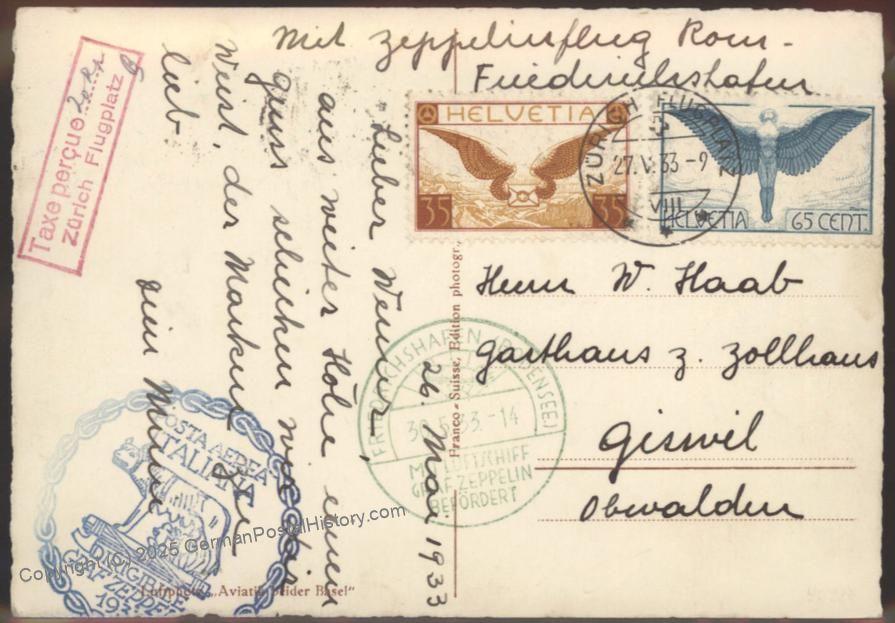 Mit Zeppelinflug Rom-
Friedrichshafen
HELVETIA
35 35
HELVETIA 65 CENT.
ZÜRICH FLUGPLATZ
27.V.33-9
VIII
Taxe perçue
Zürich Flugplatz
26. Mai 1933
Lieber Werner,
aus weiter Höhe einen
Gruss schicken wir dir
Weist, der Markus
lieb.
dein
Herrn W. Haab
Gasthaus z. Zollhaus
Giswil
Obwalden
FRIEDRICHSHAFEN (BODENSEE)
30.5.33.-14
MIT LUFTSCHIFF
GRAF ZEPPELIN
BEFÖRDERT
POSTA AEREA
ITALIANA
DIRIGIBILE
GRAF ZEPPELIN
Franco-Suisse, Edition photogr.,
Luftphoto „Aviatik beider Basel"
Copyright (c) 2025 GermanPostalHistory.com